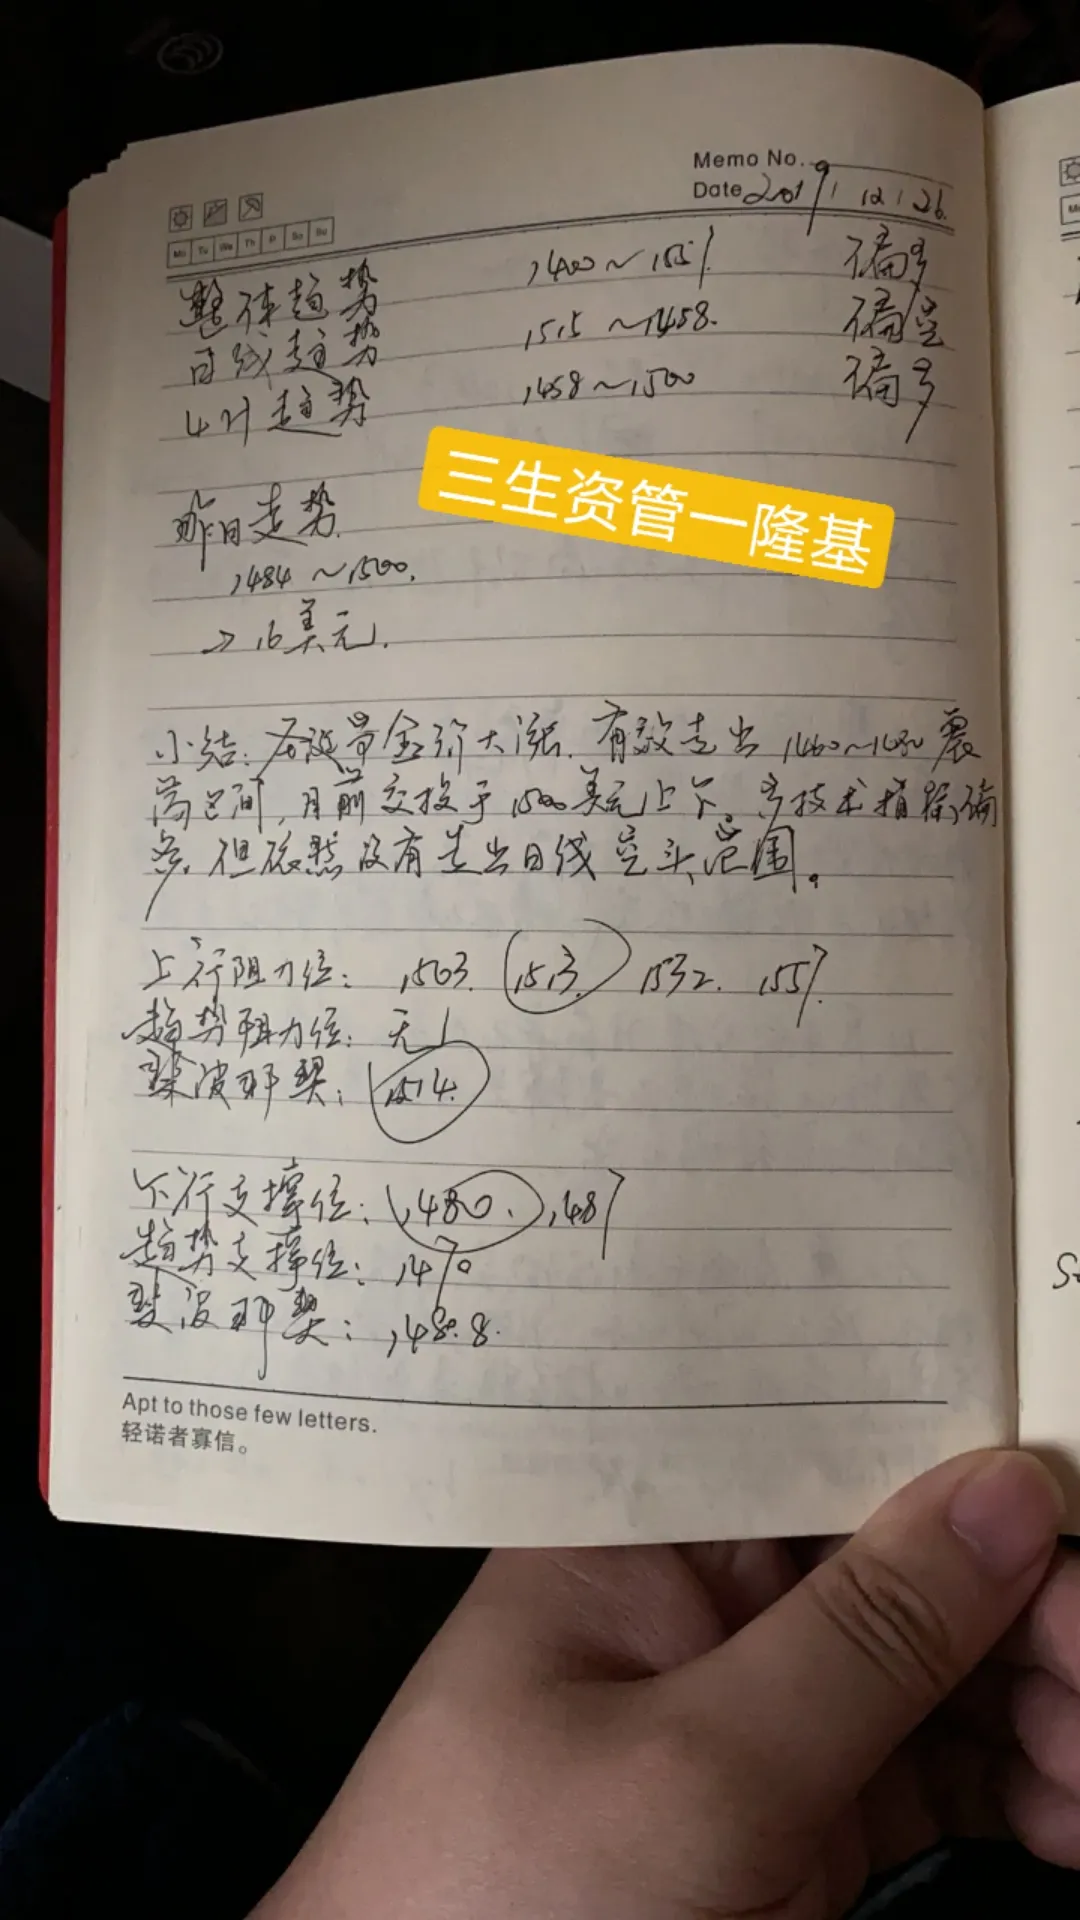 Memo No.
Date 2019 / 12 / 26.
Mo Tu We Th Fr Sa Su
整体趋势 1400~1557 偏多
日线走势 1515~1458. 偏空
4H走势 1458~1500 偏多
三生资管一隆基
昨日走势
1484~1500.
→16美元.
小结:圣诞黄金弥大涨.有效走出1460~1480震
荡区间,目前交投于1500美元上下,多技术指标偏
多.但依然没有走出日线空头范围。
上行阻力位: 1503. 1513. 1532. 1557.
趋势阻力位: 无
斐波那契: 1514.
下行支撑位: 1480. 1487
趋势支撑位: 1470
斐波那契: 1488.
Apt to those few letters.
轻诺者寡信。